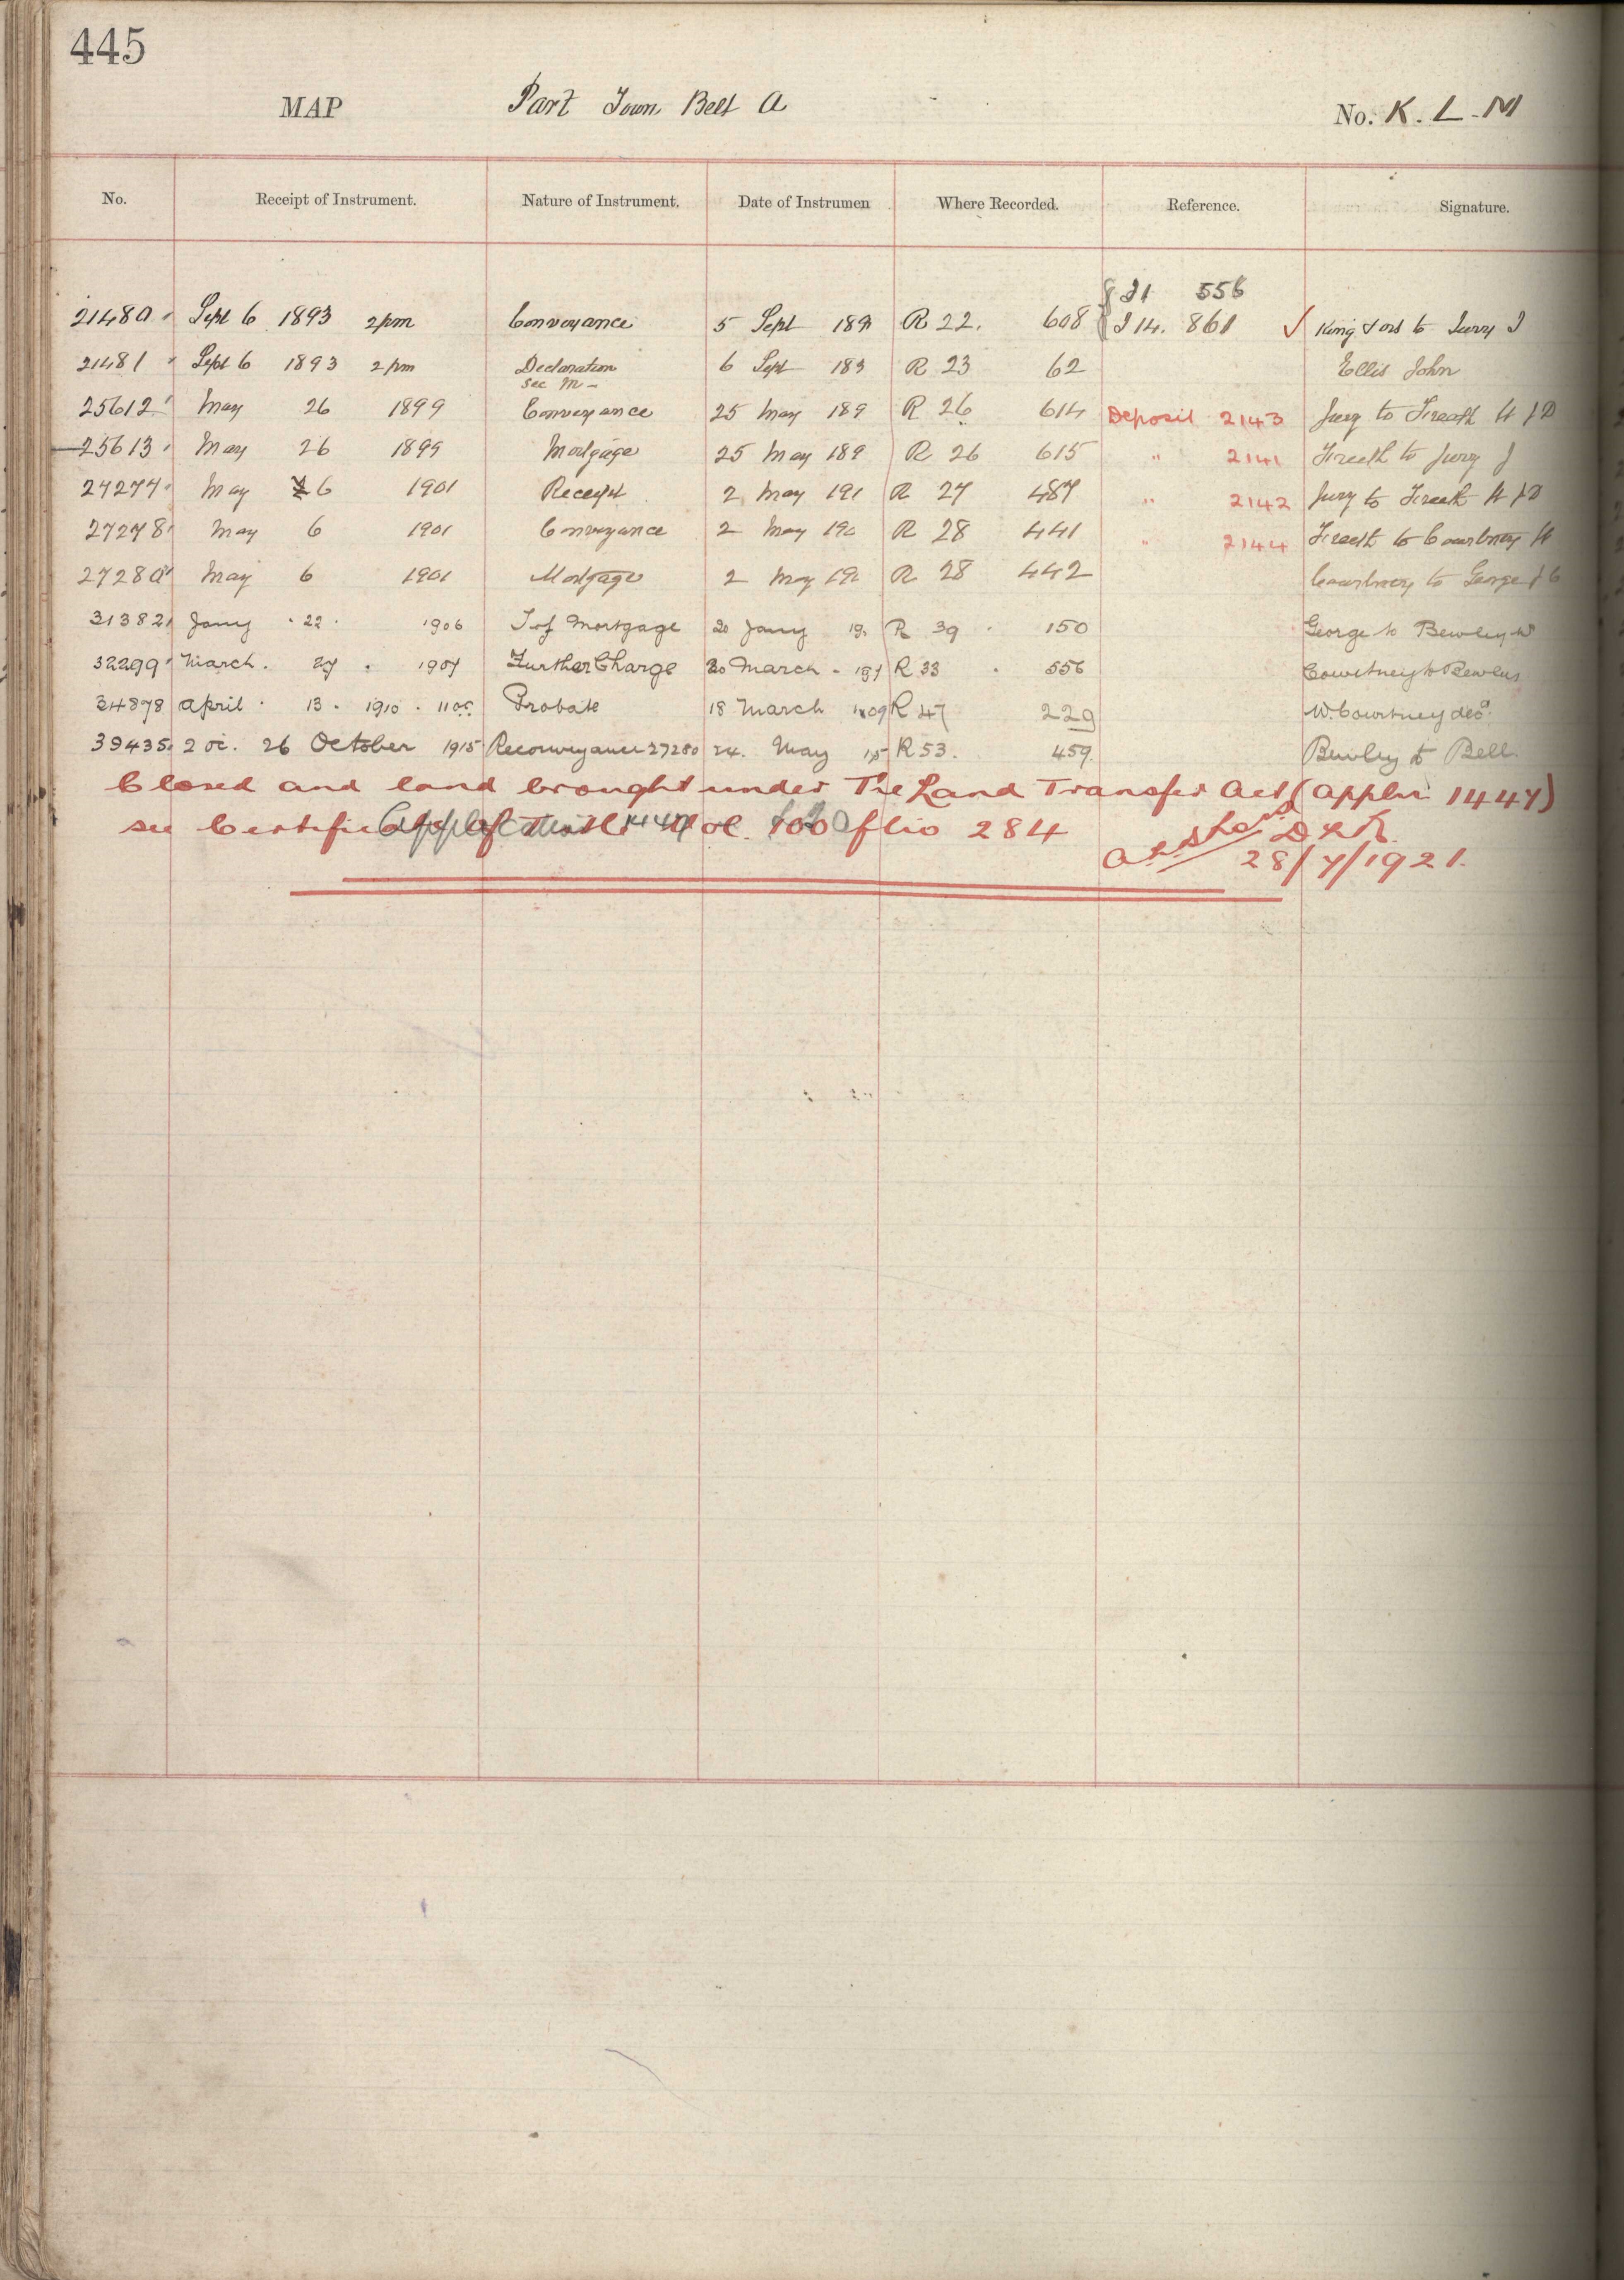 445
MAP Part Town Belt A No. K. L. M
No. Receipt of Instrument. Nature of Instrument. Date of Instrumen Where Recorded. Reference. Signature.
I 1 556
21480 Sept 6 1893 2 pm Conveyance 5 Sept 189 R 22. 608 I 14. 861 King & ors to Jury I
21481 Sept 6 1893 2 pm Declaration 6 Sept 189 R 23 62 Ellis John
see M
25612 May 26 1899 Conveyance 25 May 189 R 26 614 Deposit 2143 Jury to Treeth H J D
25613 May 26 1899 Mortgage 25 May 189 R 26 615 " 2141 Treeth to Jury J
27277 May 6 1901 Receipt 2 May 191 R 27 487 " 2142 Jury to Treeth H J D
27278 May 6 1901 Conveyance 2 May 190 R 28 441 " 2144 Treeth to Courtney W
27280 May 6 1901 Mortgage 2 May 190 R 28 442 Courtney to George J C
31382 Jany 22 1906 T. of Mortgage 20 Jany 19 R 39 150 George to Bewley W
32299 March 27 1907 Further Charge 20 March 197 R 33 556 Courtney to Bewley
34878 April 13 1910 11 oc Probate 18 March 1909 R 47 229 W. Courtney decd.
39435 2 oc. 26 October 1915 Reconveyance 27280 24. May 15 R 53. 459. Bewley to Bell
Closed and land brought under The Land Transfer Act (Appln 1447)
see Certificate of Title Vol. 100 folio 284 D L R.
28/7/1921.